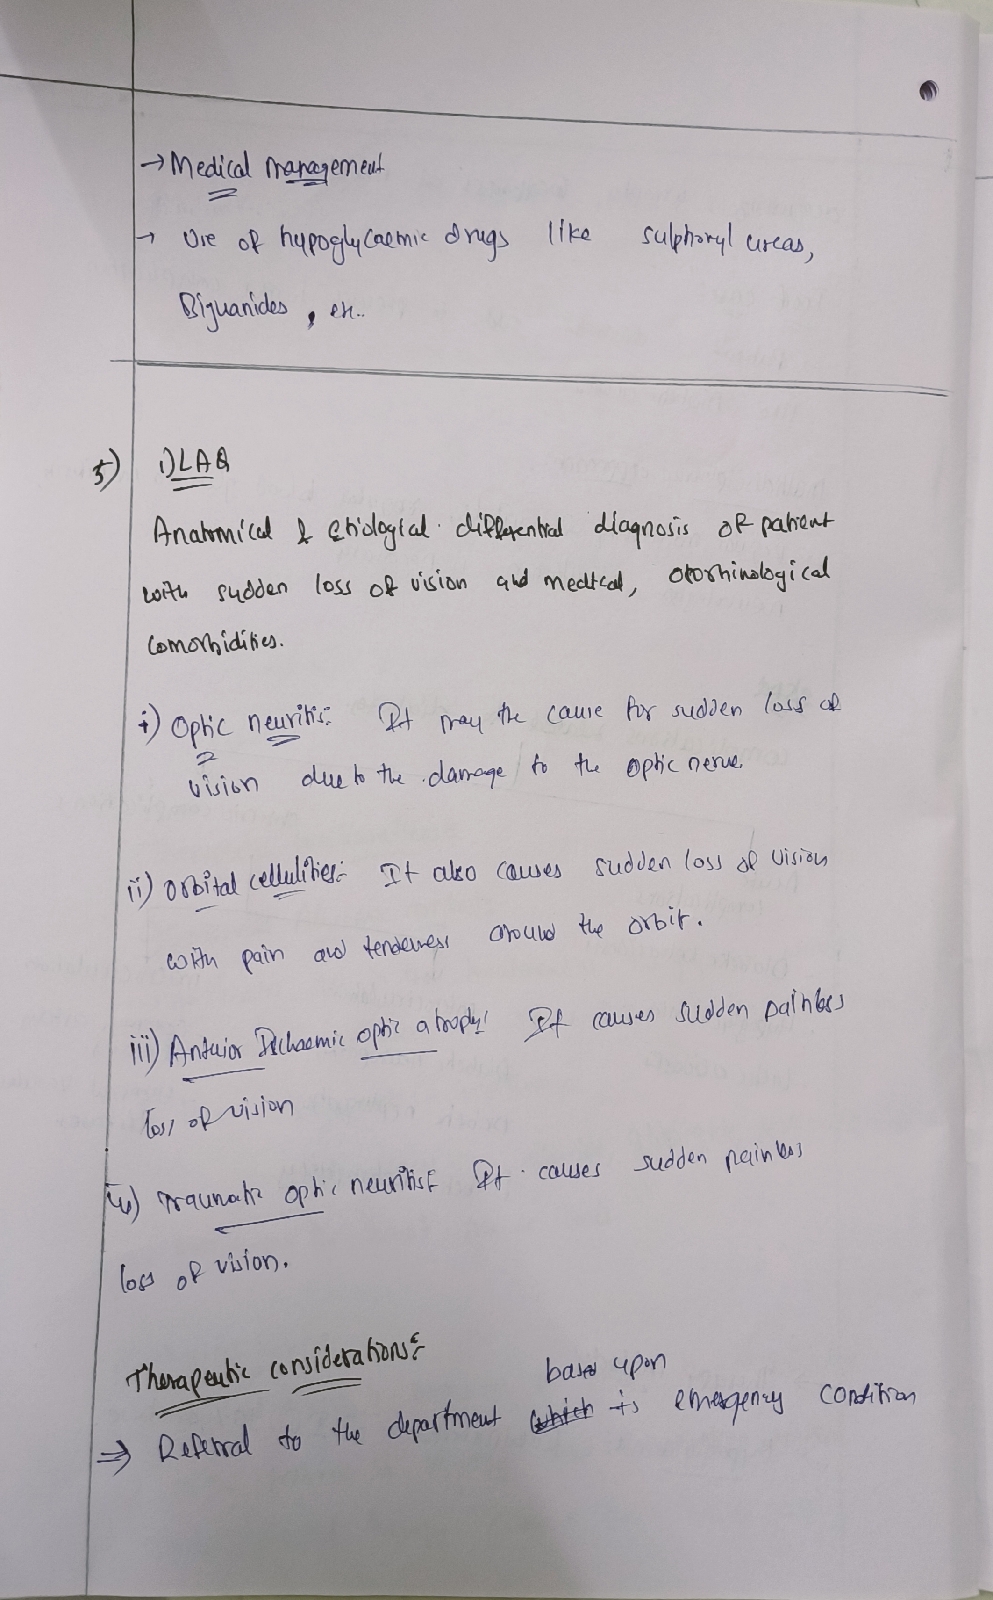 → Medical management
→ Use of hypoglycaemic drugs like sulphonyl ureas,
Biguanides, etc..
5) 1) LAQ
Anatomical & etiological differential diagnosis of patient
with sudden loss of vision and medical, otorhinological
comorbidities.
i) Optic neuritis: It may the cause for sudden loss of
vision due to the damage to the optic nerve.
ii) orbital cellulities:- It also causes sudden loss of vision
with pain and tenderness around the orbit.
iii) Anterior Ischaemic optic atrophy: It causes sudden painless
loss of vision
iv) Traumatic optic neuritis:- It causes sudden painless
loss of vision.
Therapeutic considerations:-
based upon
⇒ Referral to the department which is emergency condition